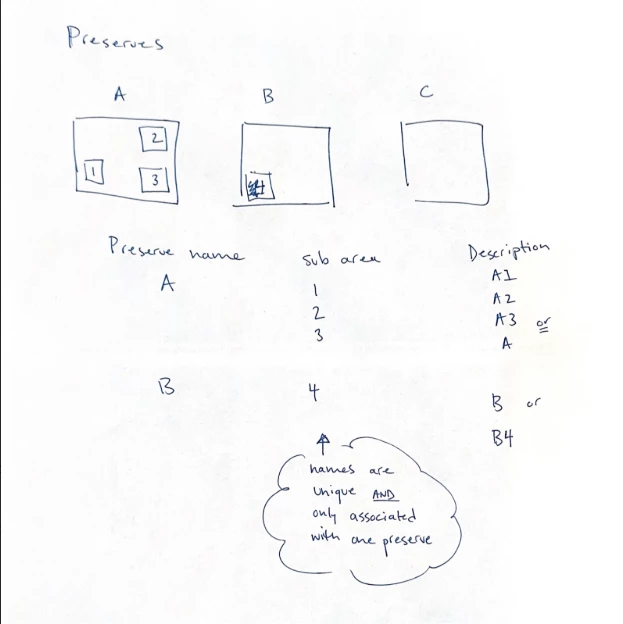 Preserves
A B C
2
1
3
4
Preserve name sub area Description
A 1 A1
2 A2
3 A3 or
A
B 4 B or
B4
names are
unique AND
only associated
with one preserve